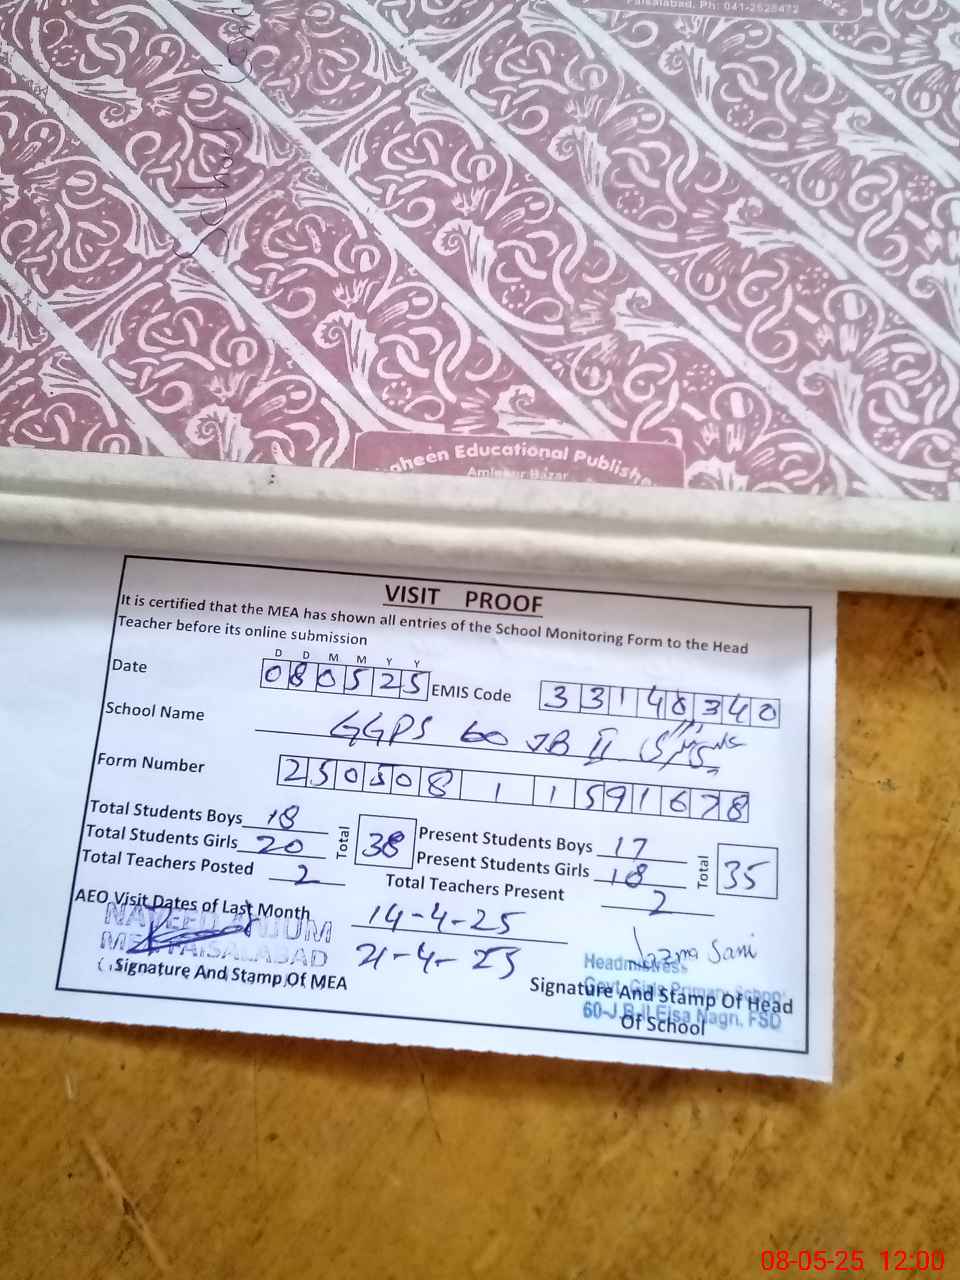 Faisalabad. Ph: 041-2628472
aheen Educational Publishe
Aminpur Bazar
VISIT PROOF
It is certified that the MEA has shown all entries of the School Monitoring Form to the Head
Teacher before its online submission
D D M M Y Y
Date 080525 EMIS Code 33148340
School Name GGPS 60 JB II
Form Number 250508 1 1591678
Total Students Boys 18
Total Students Girls 20
Total 38
Total Teachers Posted 2
Present Students Boys 17
Present Students Girls 18
Total 35
Total Teachers Present 2
AEO Visit Dates of Last Month 14-4-25
21-4-25
NAVEED ANJUM
MEA FAISALABAD
Signature And Stamp Of MEA
Sani
Headmistress
Govt. Girls Primary School
60-J.B-II Eisa Nagri, FSD
Signature And Stamp Of Head
Of School
08-05-25 12:00